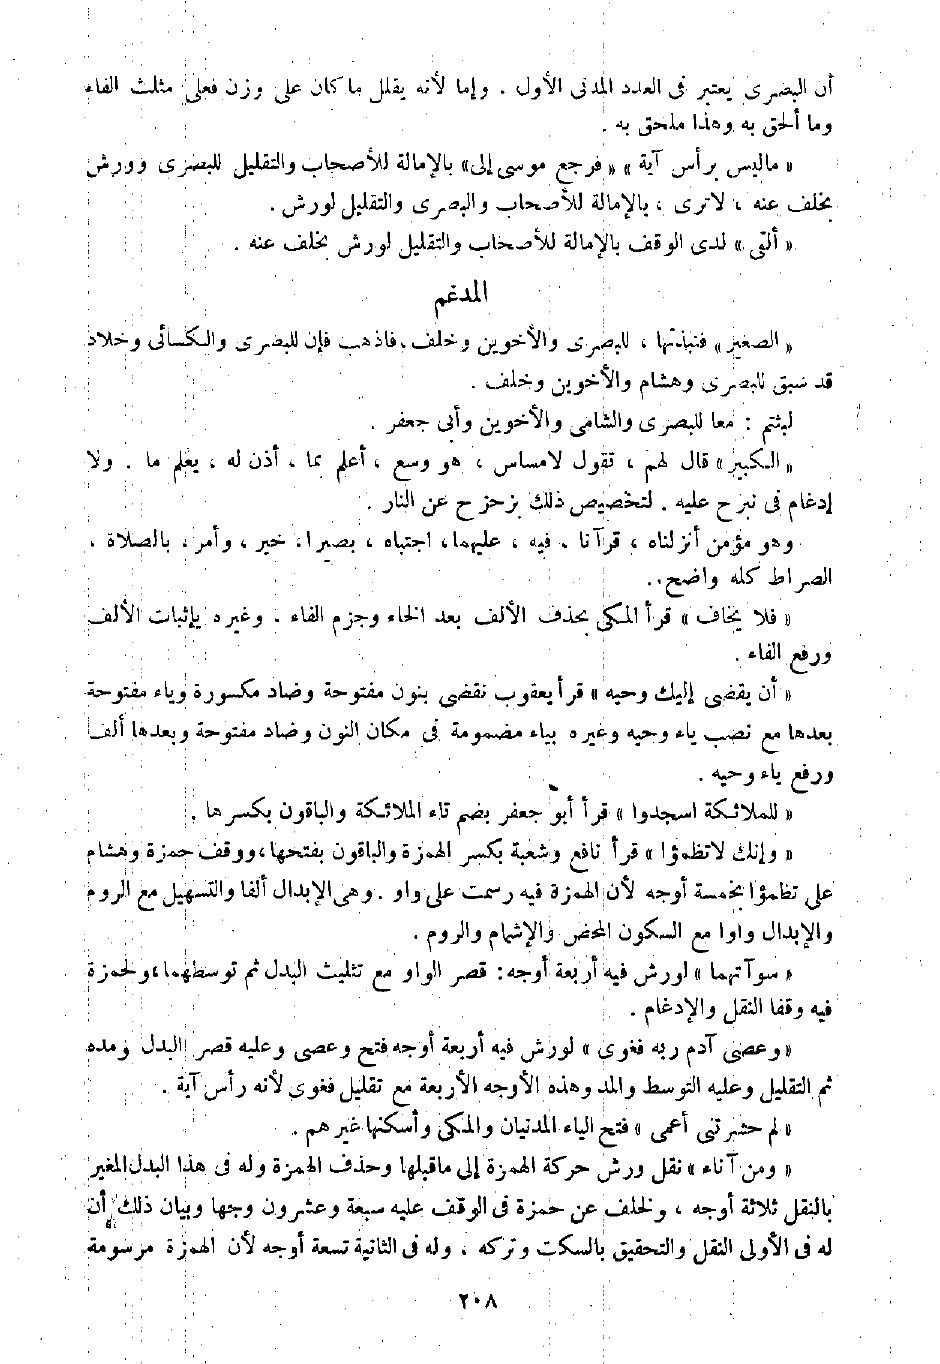 أن البصرى يعتبر فى العدد المدنى الأول . وإما لأنه يقلل ما كان على وزن فعلى مثلث الفاء
وما ألحق به وهذا ملحق به .
« ماليس برأس آية » « فرجع موسى إلى » بالإمالة للأصحاب والتقليل للبصرى وورش
بخلف عنه ، لاترى ، بالإمالة للأصحاب والبصرى والتقليل لورش .
« ألقى » لدى الوقف بالإمالة للأصحاب والتقليل لورش بخلف عنه .
المدغم
« الصغير » فنبذتها ، للبصرى والأخوين وخلف . فاذهب فإن للبصرى والكسائى وخلاد
قد سبق للبصرى وهشام والأخوين وخلف .
لبثتم : معا للبصرى والشامى والأخوين وأبى جعفر .
« الكبير » قال لهم ، تقول لامساس ، هو وسع ، أعلم بما ، أذن له ، يعلم ما . ولا
إدغام فى نبرح عليه . لتخصيص ذلك بزحزح عن النار .
وهو مؤمن أنزلناه ، قرآنا . فيه ، عليهما ، اجتباه ، بصيرا ، خير ، وأمر ، بالصلاة .
الصراط كله واضح . .
« فلا يخاف » قرأ المكى بحذف الألف بعد الخاء وجزم الفاء . وغيره بإثبات الألف
ورفع الفاء .
« أن يقضى إليك وحيه » قرأ يعقوب نقضى بنون مفتوحة وضاد مكسورة وياء مفتوحة
بعدها مع نصب ياء وحيه وغيره بياء مضمومة فى مكان النون وضاد مفتوحة وبعدها ألف
ورفع ياء وحيه .
« للملائكة اسجدوا » قرأ أبو جعفر بضم تاء الملائكة والباقون بكسرها .
« وإنك لاتظمؤا » قرأ نافع وشعبة بكسر الهمزة والباقون بفتحها ، ووقف حمزة وهشام
على تظمؤا بخمسة أوجه لأن الهمزة فيه رسمت على واو . وهى الإبدال ألفا والتسهيل مع الروم
والإبدال واوا مع السكون المحض والإشمام والروم .
« سوآتهما » لورش فيه أربعة أوجه : قصر الواو مع تثليث البدل ثم توسطهما ، ولحمزة
فيه وقفا النقل والإدغام .
« وعصى آدم ربه فغوى » لورش فيه أربعة أوجه فتح وعصى وعليه قصر البدل ومده
ثم التقليل وعليه التوسط والمد وهذه الأوجه الأربعة مع تقليل فغوى لأنه رأس آية .
« لم حشرتنى أعمى » فتح الياء المدنيان والمكى وأسكنها غيرهم .
« ومن آناء » نقل ورش حركة الهمزة إلى ماقبلها وحذف الهمزة وله فى هذا البدل المغير
بالنقل ثلاثة أوجه ، ولخلف عن حمزة فى الوقف عليه سبعة وعشرون وجها وبيان ذلك أن
له فى الأولى النقل والتحقيق بالسكت وتركه ، وله فى الثانية تسعة أوجه لأن الهمزة مرسومة
٢٠٨